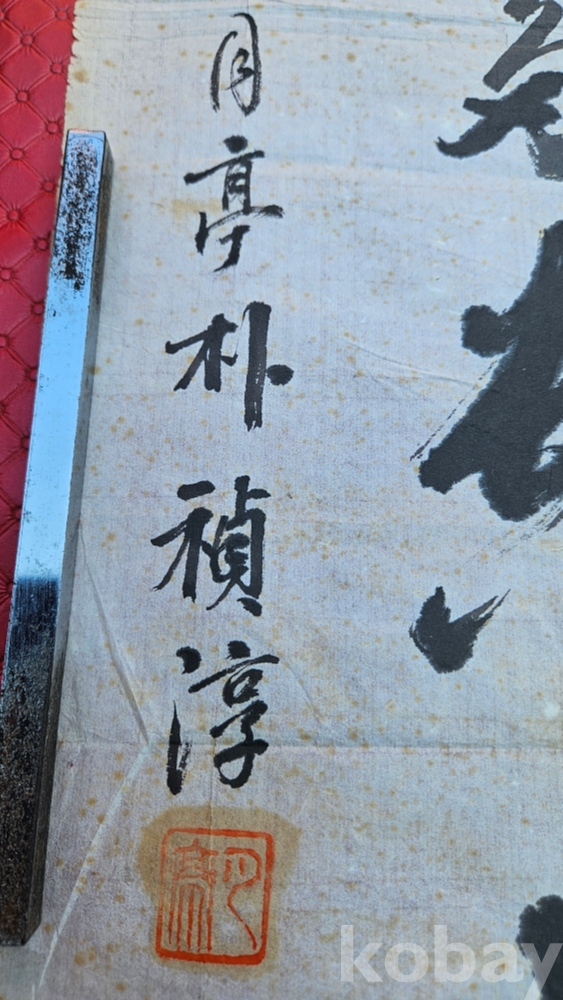 月亭朴禎淳
月亭
kobay